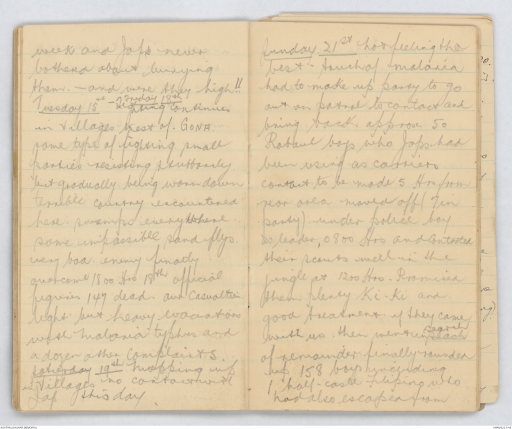 week and Japs never
bothered about burrying
them. - and were they high!!
Tuesday 15th - Friday 18th
fighting continues
in villages West of GONA.
same type of fighting small
parties resisting stubbornly
but gradually being worn down
terrible country encountered
here. swamps everywhere
some impossible, sand flys
very bad. enemy finally
overcome 1800 Hrs 18th official
figures 147 dead. our casualties
light but heavy evacuation
with malaria typhus and
a dozen other complaints.
Saturday 19th mopping up
in villages no contact with
Jap this day.
Sunday 21st not feeling the
best - touch of malaria
had to make up party to go
out on patrol to contact and
bring back approx. 50
Rabaul boys, who Japs had
been using as carriers
contact to be made 5 Hrs from
our area - moved off (7 in
party) under police boy
as leader, 0800 Hrs and contacted
their scouts well in the
jungle at 1200 Hrs. Promised
them plenty Ki-Ki and
good treatment if they came
with us. then went in search
of remainder finally rounded
up 158 boys including
1 'half-caste' Filipino who
had also escaped from